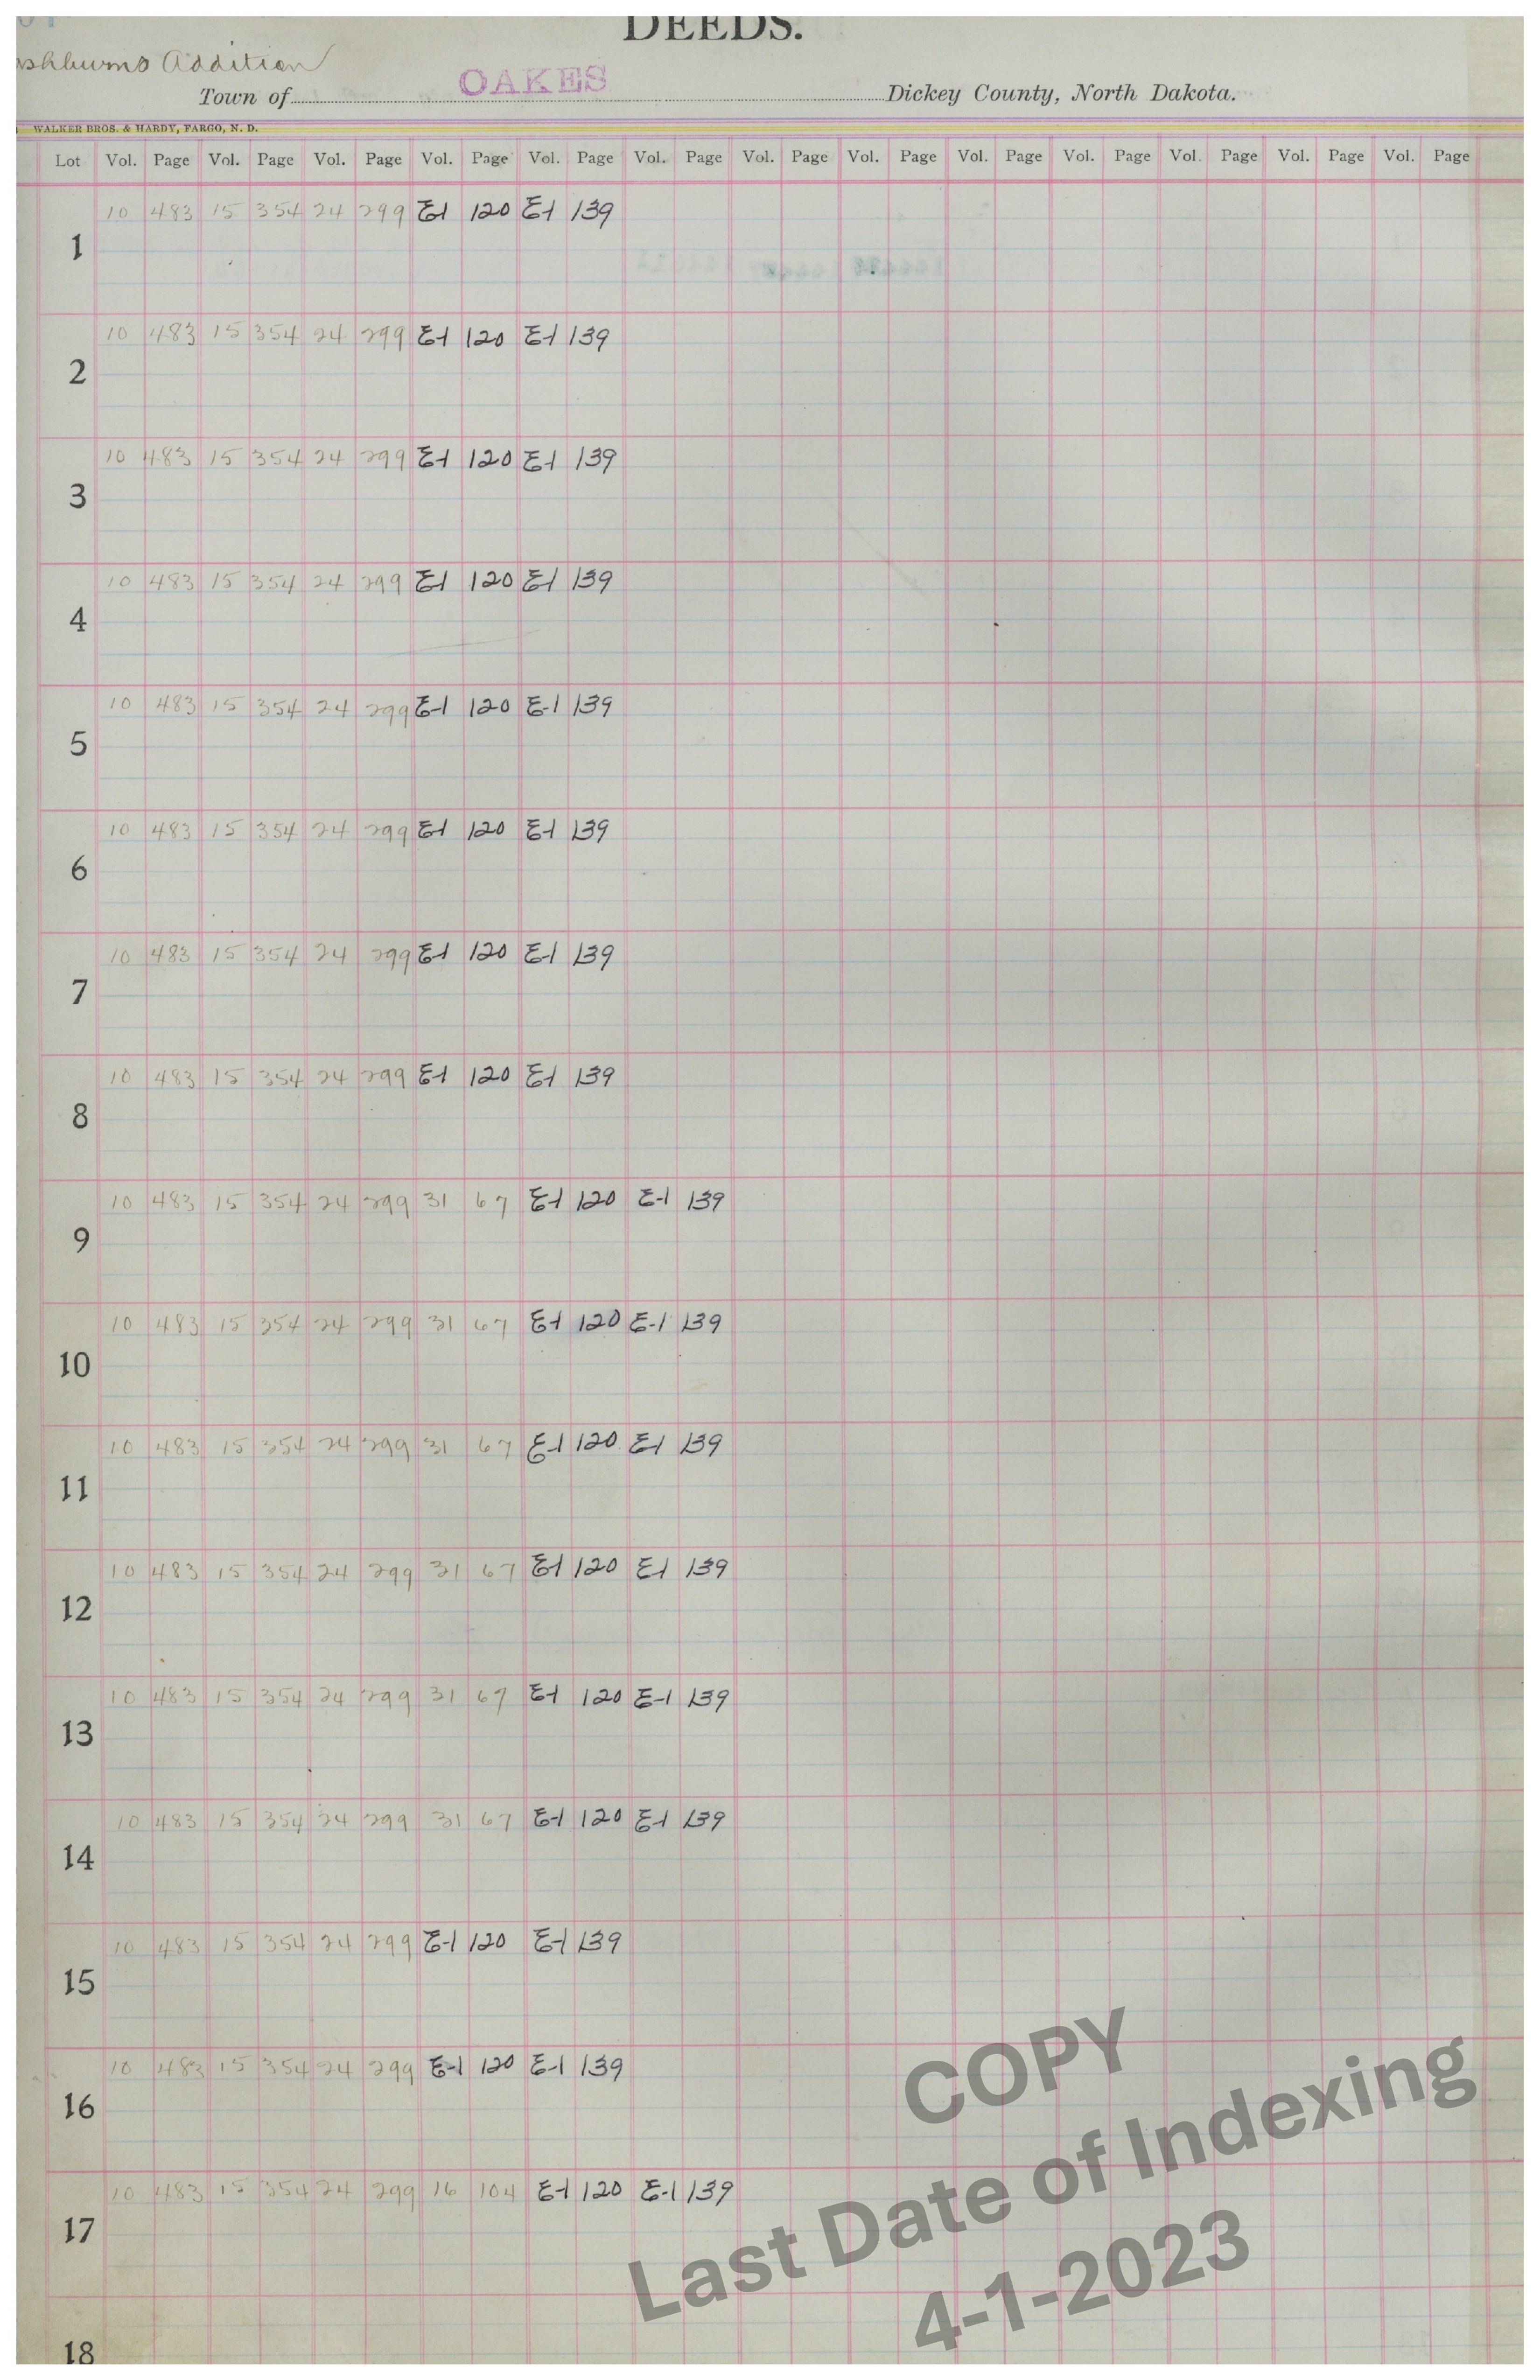 DEEDS.
Addition
Town of OAKES Dickey County, North Dakota.
WALKER BROS. & HARDY, FARGO, N. D.
Lot Vol. Page Vol. Page Vol. Page Vol. Page Vol. Page Vol. Page Vol. Page Vol. Page Vol. Page Vol. Page Vol. Page Vol. Page Vol. Page
10 483 15 354 24 299 E-1 120 E-1 139
1
10 483 15 354 24 299 E-1 120 E-1 139
2
10 483 15 354 24 299 E-1 120 E-1 139
3
10 483 15 354 24 299 E-1 120 E-1 139
4
10 483 15 354 24 299 E-1 120 E-1 139
5
10 483 15 354 24 299 E-1 120 E-1 139
6
10 483 15 354 24 299 E-1 120 E-1 139
7
10 483 15 354 24 299 E-1 120 E-1 139
8
10 483 15 354 24 299 31 67 E-1 120 E-1 139
9
10 483 15 354 24 299 31 67 E-1 120 E-1 139
10
10 483 15 354 24 299 31 67 E-1 120 E-1 139
11
10 483 15 354 24 299 31 67 E-1 120 E-1 139
12
10 483 15 354 24 299 31 67 E-1 120 E-1 139
13
10 483 15 354 24 299 31 67 E-1 120 E-1 139
14
10 483 15 354 24 299 E-1 120 E-1 139
15
10 483 15 354 24 299 E-1 120 E-1 139
16
10 483 15 354 24 299 16 104 E-1 120 E-1 139
17
18
COPY
Last Date of Indexing
4-1-2023